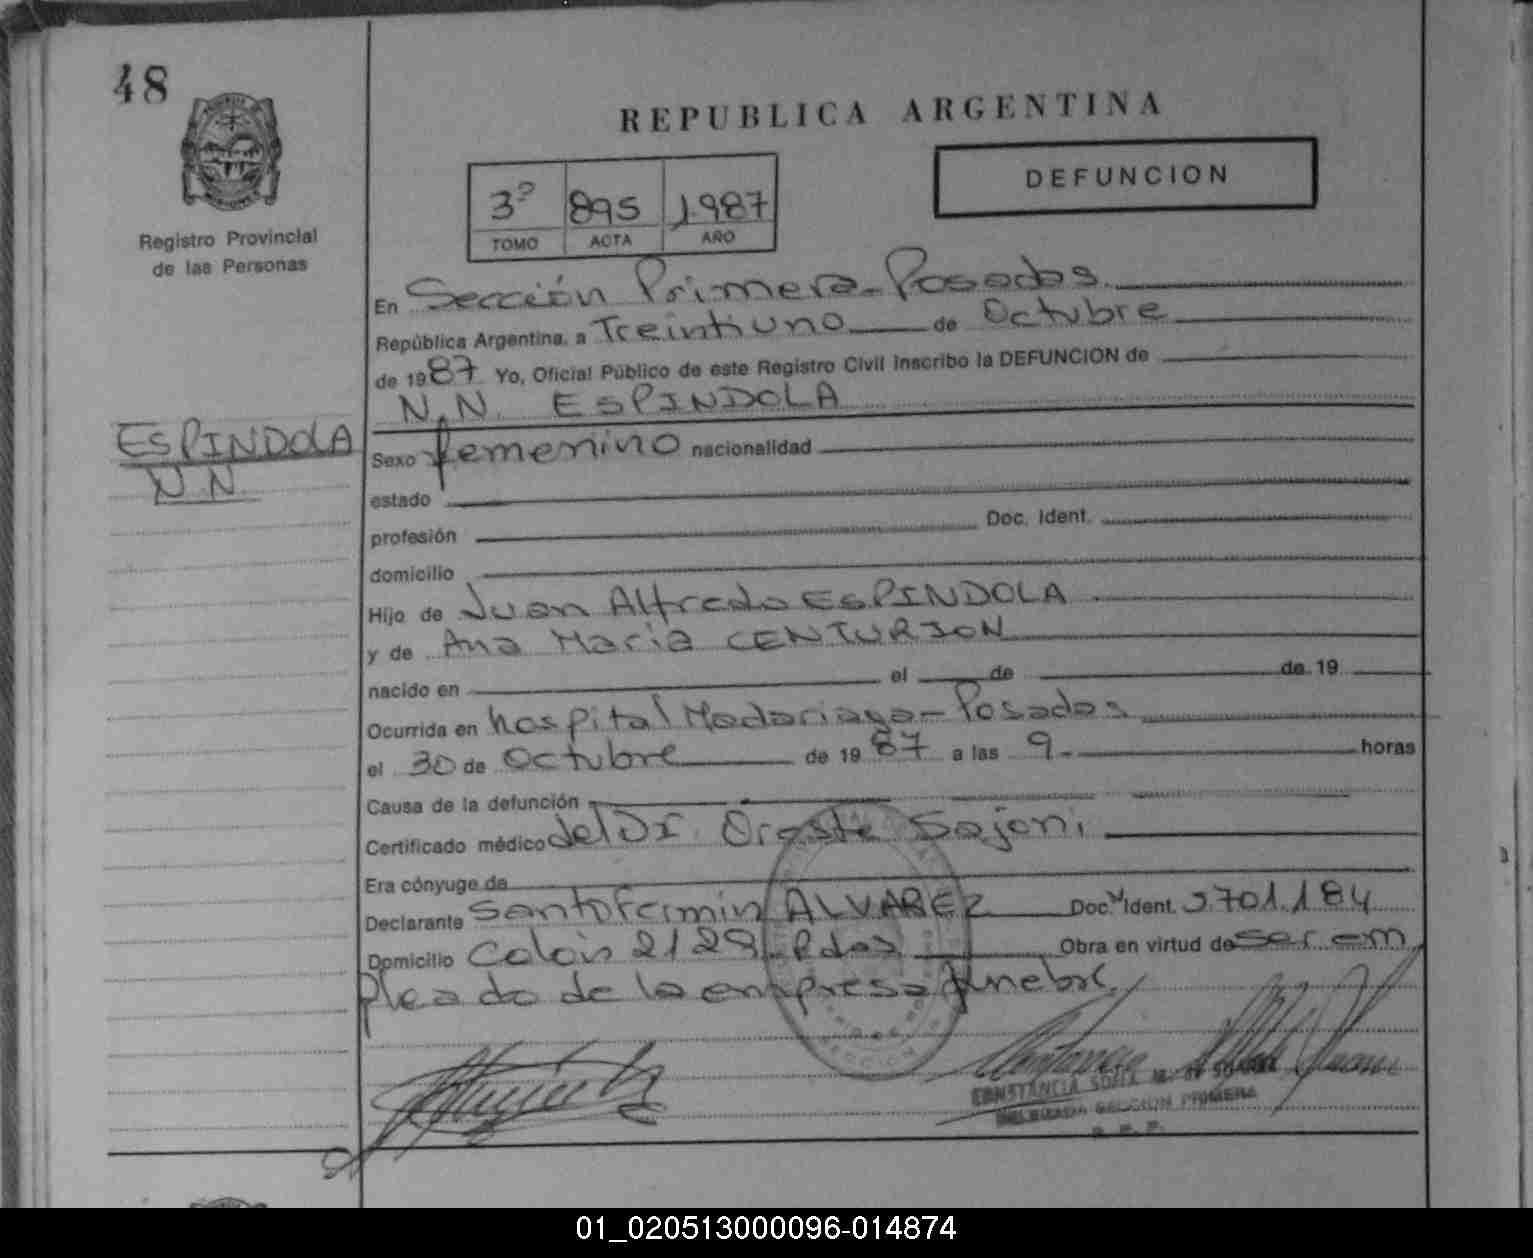 48
REPUBLICA ARGENTINA
DEFUNCION
3º 895 1987
TOMO ACTA AÑO
Registro Provincial
de las Personas
En Sección Primera - Posadas
República Argentina, a Treintiuno de Octubre
de 1987 Yo, Oficial Público de este Registro Civil inscribo la DEFUNCION de
N.N. ESPINDOLA
ESPINDOLA
N.N.
Sexo femenino nacionalidad
estado
profesión Doc. Ident.
domicilio
Hijo de Juan Alfredo ESPINDOLA
y de Ana Maria CENTURION
nacido en el de de 19
Ocurrida en hospital Madariaga - Posadas
el 30 de Octubre de 1987 a las 9- horas
Causa de la defunción
Certificado médico del Dr. Oreste Sajoni
Era cónyuge de
Declarante Santo Fermin ALVAREZ Doc. Ident. 701.184
Domicilio Colón 2128 - Pdas Obra en virtud de ser em
pleado de la empresa funebre
CONSTANCIA SOFIA M. DE SUAREZ
DELEGADA SECCION PRIMERA
R. P. P.
SECCION
01_020513000096-014874